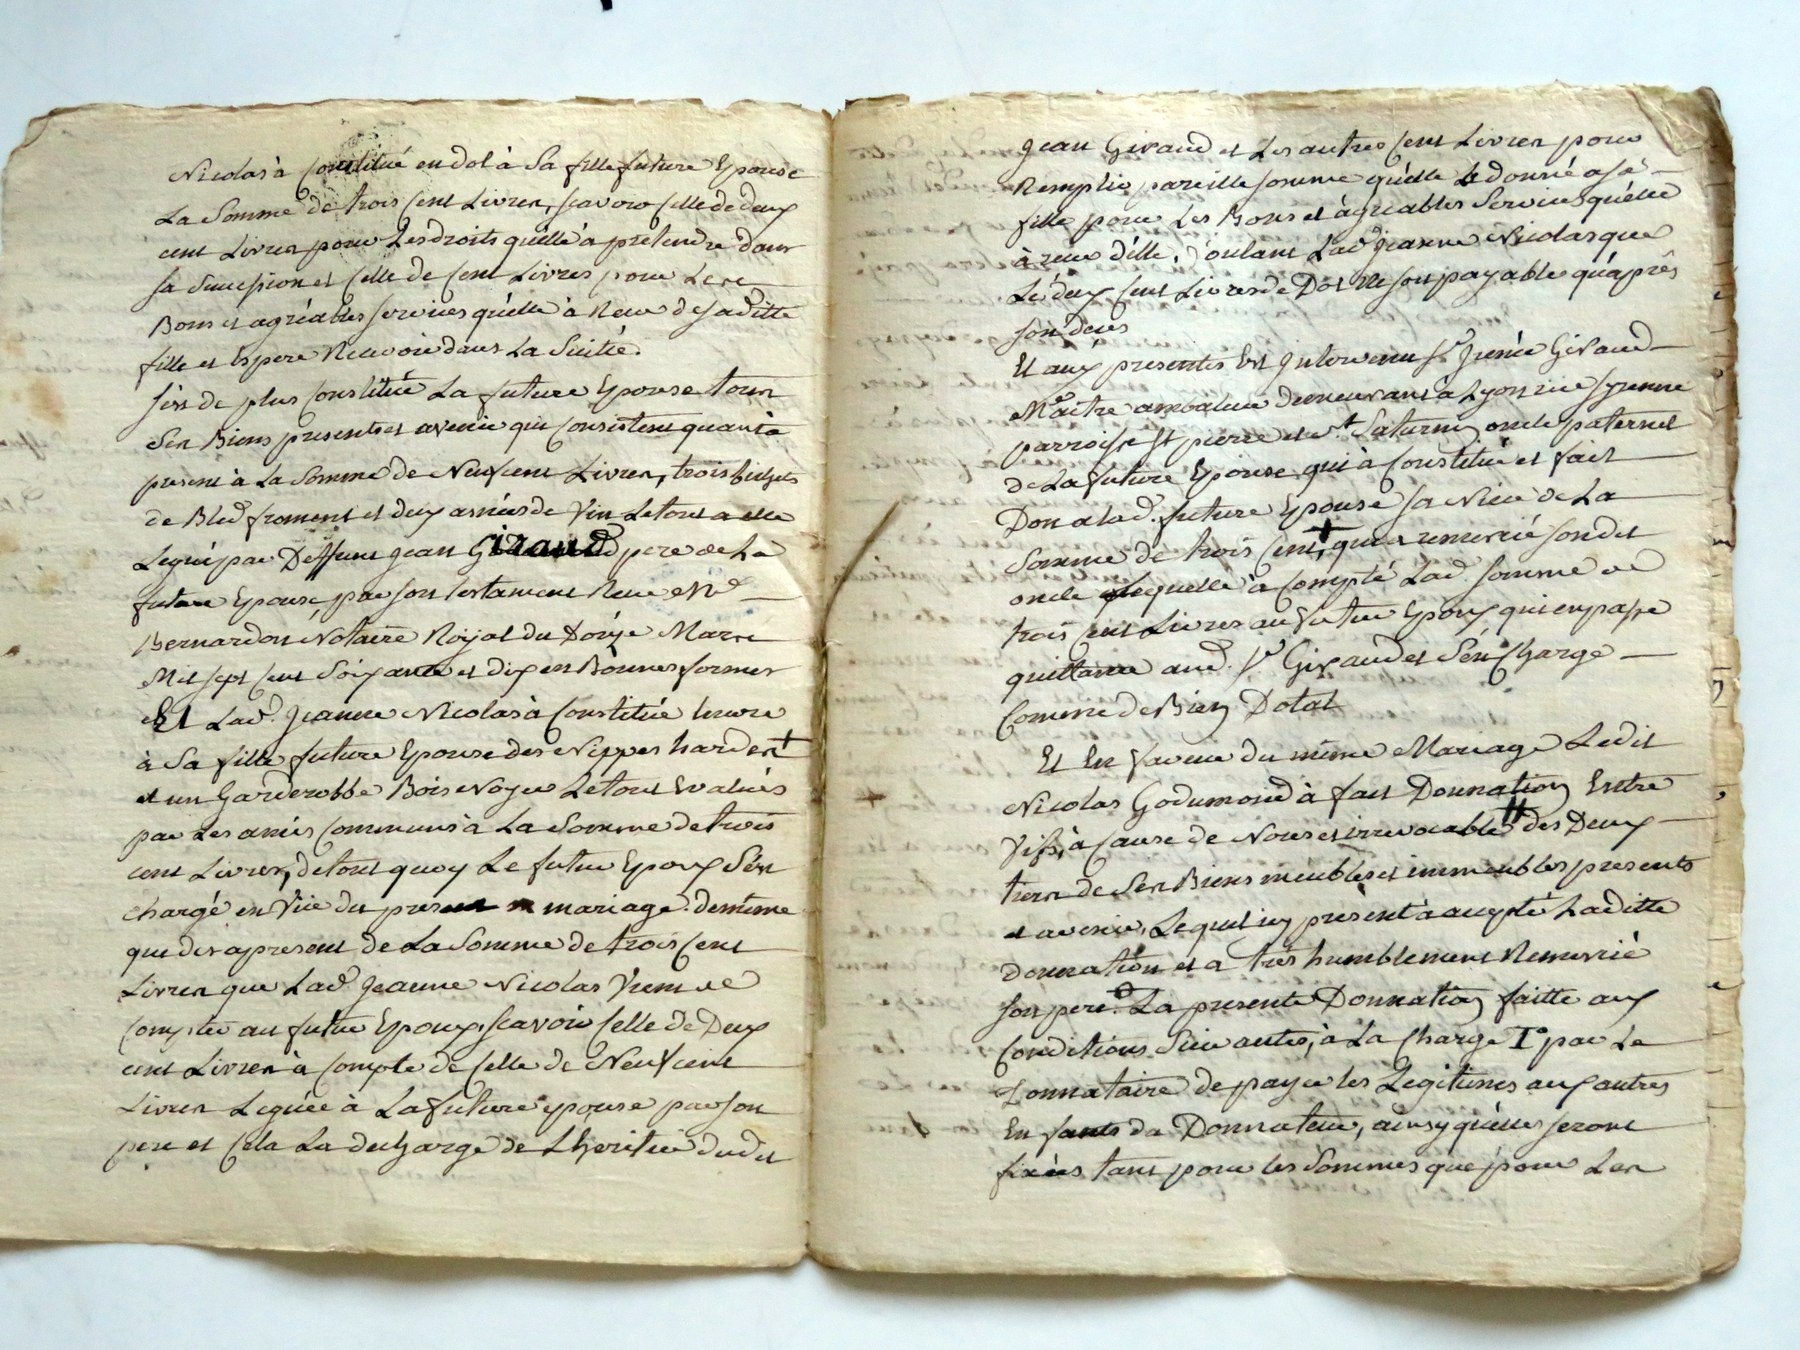 Nicolas à Constitué en dot à Sa fille future Epouse
La Somme de trois Cent Livres, scavoir Celle de deux
cent Livres pour Les droits quélle à pretendre dans
sa Succession et Celle de Cent Livres pour Les
Bons et agréables services quélle à Receu de saditte
fille et Espere Recevoir dans La Suitte.
s'est de plus Constituée La future Epouse tous
Ses Biens presents et avenir qui Consistent quant à
present à La Somme de Neuf cent Livres, trois bichets
de Bled froment et deux asnées de Vin Le tout a elle
Legué par Deffunt Jean Giraud pere de La
future Epouse par son testament Receu Me
Bernardon Notaire Royal du Douze Mars
Mil sept cent Soixante et dix en Bonnes formes
Et Lad. Jeanne Nicolas à Constitué Encore
à Sa fille future Epouse des Nippes hardes +
et un Garderobbe Bois Noyer Le tout Evalués
par Les amis Communs à La Somme de trois
cent Livres, de tout quoy Le futur Epoux S'est
chargé en Vüe du present mariage. de même
que des apresent de La Somme de trois Cent
Livres que Lad. Jeanne Nicolas Vient de
Compter au futur Epoux, scavoir Celle de Deux
cent Livres à Compte de Celle de Neuf cent
Livres Leguée à La future epouse par son
pere et Cela La decharge de Lheritier dudit
Jean Giraud et Les autres Cent Livres pour
Remplir pareille somme quélle a donné a sa
fille pour Les Bons et agreables Services quélle
à receu d'élle. Voulant Lad. Jeanne Nicolas que
Les deux Cent Livres de Dot Ne soit payable qu'aprés
son deces
Et aux presentes Est Intervenu Sr Irénée Giraud
Maître ambaleur demeurant à Lyon rüe Syrenne
parroisse St pierre et St Saturnin oncle paternel
de La future Epouse qui à Constitué et fait
Don a lad. future Epouse sa Niece de La
Somme de trois Cent + qui a remercié sondit
oncle Lequel à Compté Lad. Somme de
trois Cent Livres au futur Epoux qui en passe
quittance aud. Sr Giraud et S'en Charge
Comme de Bien Dotal
Et En faveur du même Mariage Ledit
Nicolas Godumond à fait Donnation Entre
Vifs, à Cause de Noces et irrevocable # des Deux
tiers de Ses Biens meubles et immeubles presents
et avenir, Lequel icy présent à accepté Laditte
donnation et a trés humblement Remercié
son pere. La presente Donnation faitte aux
Conditions Suivantes, à La Charge 1° par Le
Donnataire de payer les Legitimes aux autres
Enfants du Donnateur, ainsy quélles seront
fixées tant pour les Sommes que pour Les